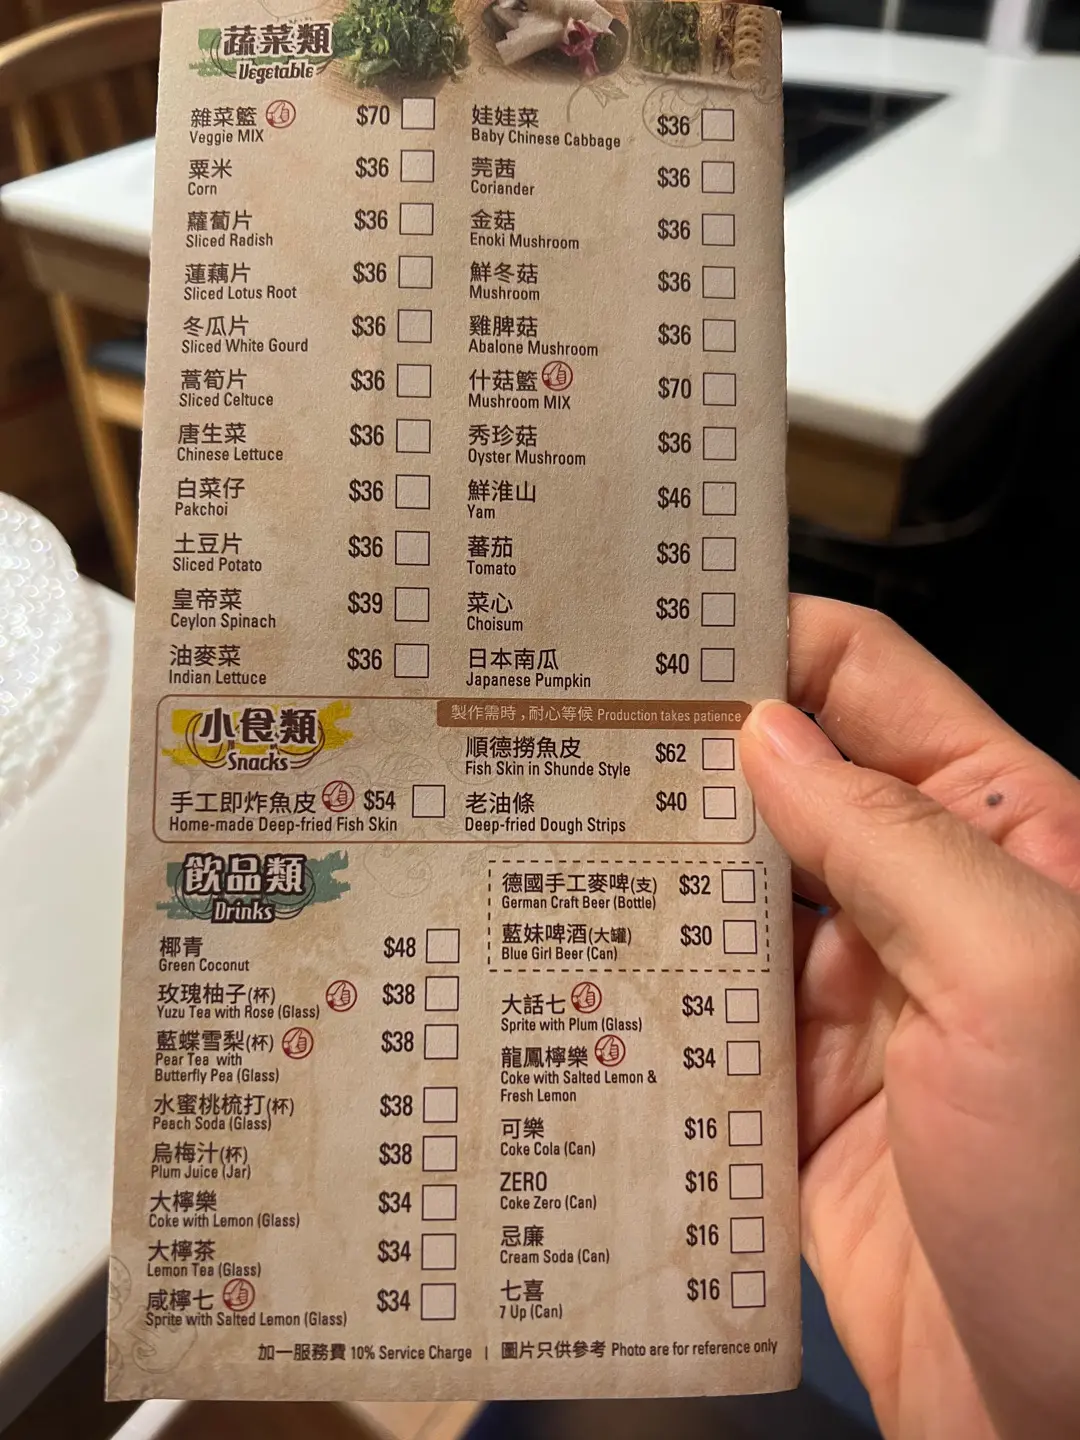 蔬菜類
Vegetable
雜菜籃 $70
Veggie MIX
粟米 $36
Corn
蘿蔔片 $36
Sliced Radish
蓮藕片 $36
Sliced Lotus Root
冬瓜片 $36
Sliced White Gourd
萵筍片 $36
Sliced Celtuce
唐生菜 $36
Chinese Lettuce
白菜仔 $36
Pakchoi
土豆片 $36
Sliced Potato
皇帝菜 $39
Ceylon Spinach
油麥菜 $36
Indian Lettuce
娃娃菜 $36
Baby Chinese Cabbage
莞茜 $36
Coriander
金菇 $36
Enoki Mushroom
鮮冬菇 $36
Mushroom
雞脾菇 $36
Abalone Mushroom
什菇籃 $70
Mushroom MIX
秀珍菇 $36
Oyster Mushroom
鮮淮山 $46
Yam
蕃茄 $36
Tomato
菜心 $36
Choisum
日本南瓜 $40
Japanese Pumpkin
小食類
Snacks
製作需時，耐心等候 Production takes patience
順德撈魚皮 $62
Fish Skin in Shunde Style
手工即炸魚皮 $54
Home-made Deep-fried Fish Skin
老油條 $40
Deep-fried Dough Strips
飲品類
Drinks
椰青 $48
Green Coconut
玫瑰柚子(杯) $38
Yuzu Tea with Rose (Glass)
藍蝶雪梨(杯) $38
Pear Tea with
Butterfly Pea (Glass)
水蜜桃梳打(杯) $38
Peach Soda (Glass)
烏梅汁(杯) $38
Plum Juice (Jar)
大檸樂 $34
Coke with Lemon (Glass)
大檸茶 $34
Lemon Tea (Glass)
咸檸七 $34
Sprite with Salted Lemon (Glass)
德國手工麥啤(支) $32
German Craft Beer (Bottle)
藍妹啤酒(大罐) $30
Blue Girl Beer (Can)
大話七 $34
Sprite with Plum (Glass)
龍鳳檸樂 $34
Coke with Salted Lemon &
Fresh Lemon
可樂 $16
Coke Cola (Can)
ZERO $16
Coke Zero (Can)
忌廉 $16
Cream Soda (Can)
七喜 $16
7 Up (Can)
加一服務費 10% Service Charge | 圖片只供參考 Photo are for reference only